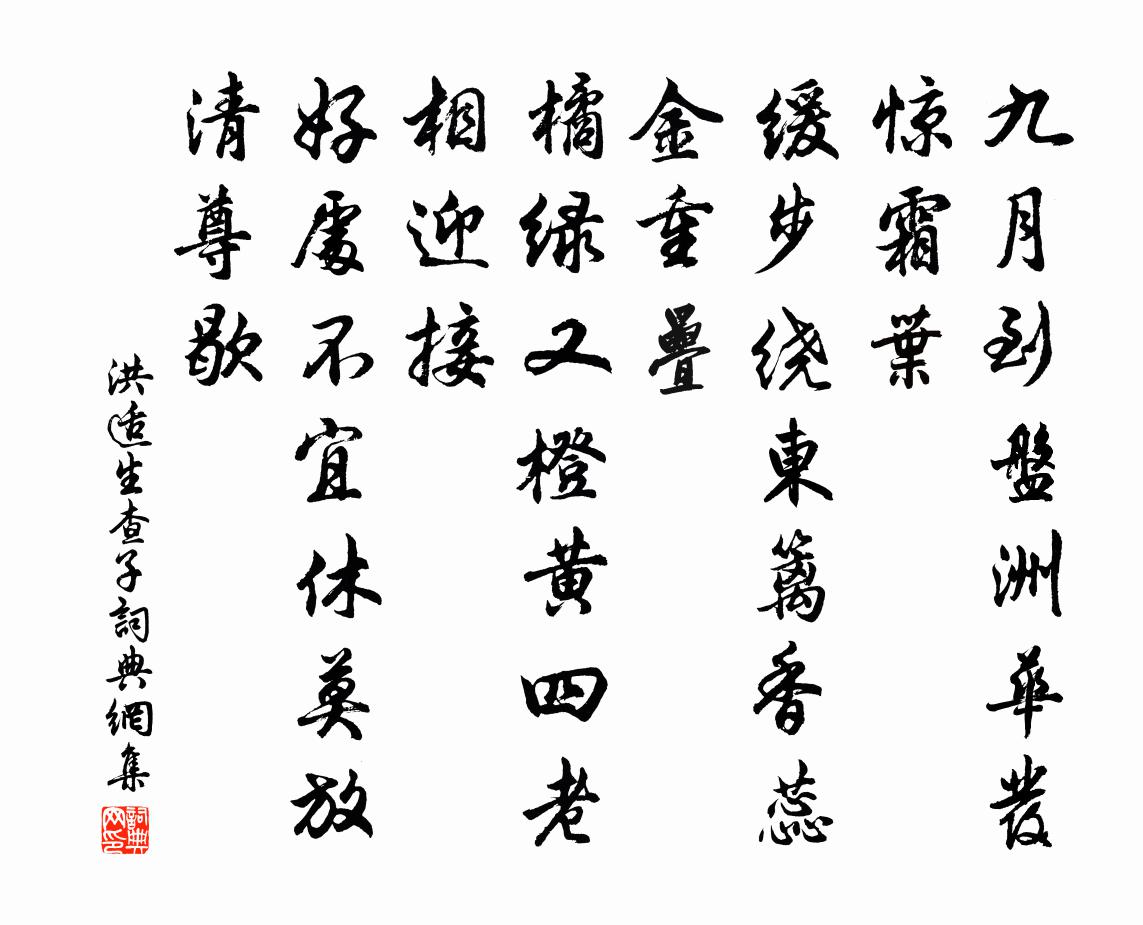 九月到盤洲華發
惊霜葉
缓步绕東篱香蕊
金重疊
橘绿又橙黄四老
相迎接
好處不宜休莫放
清尊歇
洪适生查子詞典網集
詞典网印